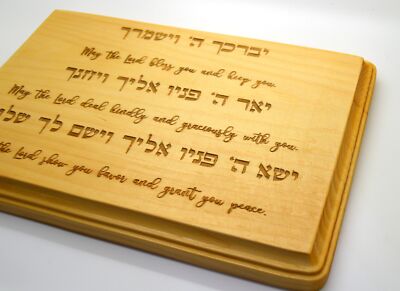 יברכך ה' וישמרך
May the Lord bless you and keep you.
יאר ה' פניו אליך ויחנך
May the Lord deal kindly and graciously with you.
ישא ה' פניו אליך וישם לך
the Lord show you favor and grant you peace.